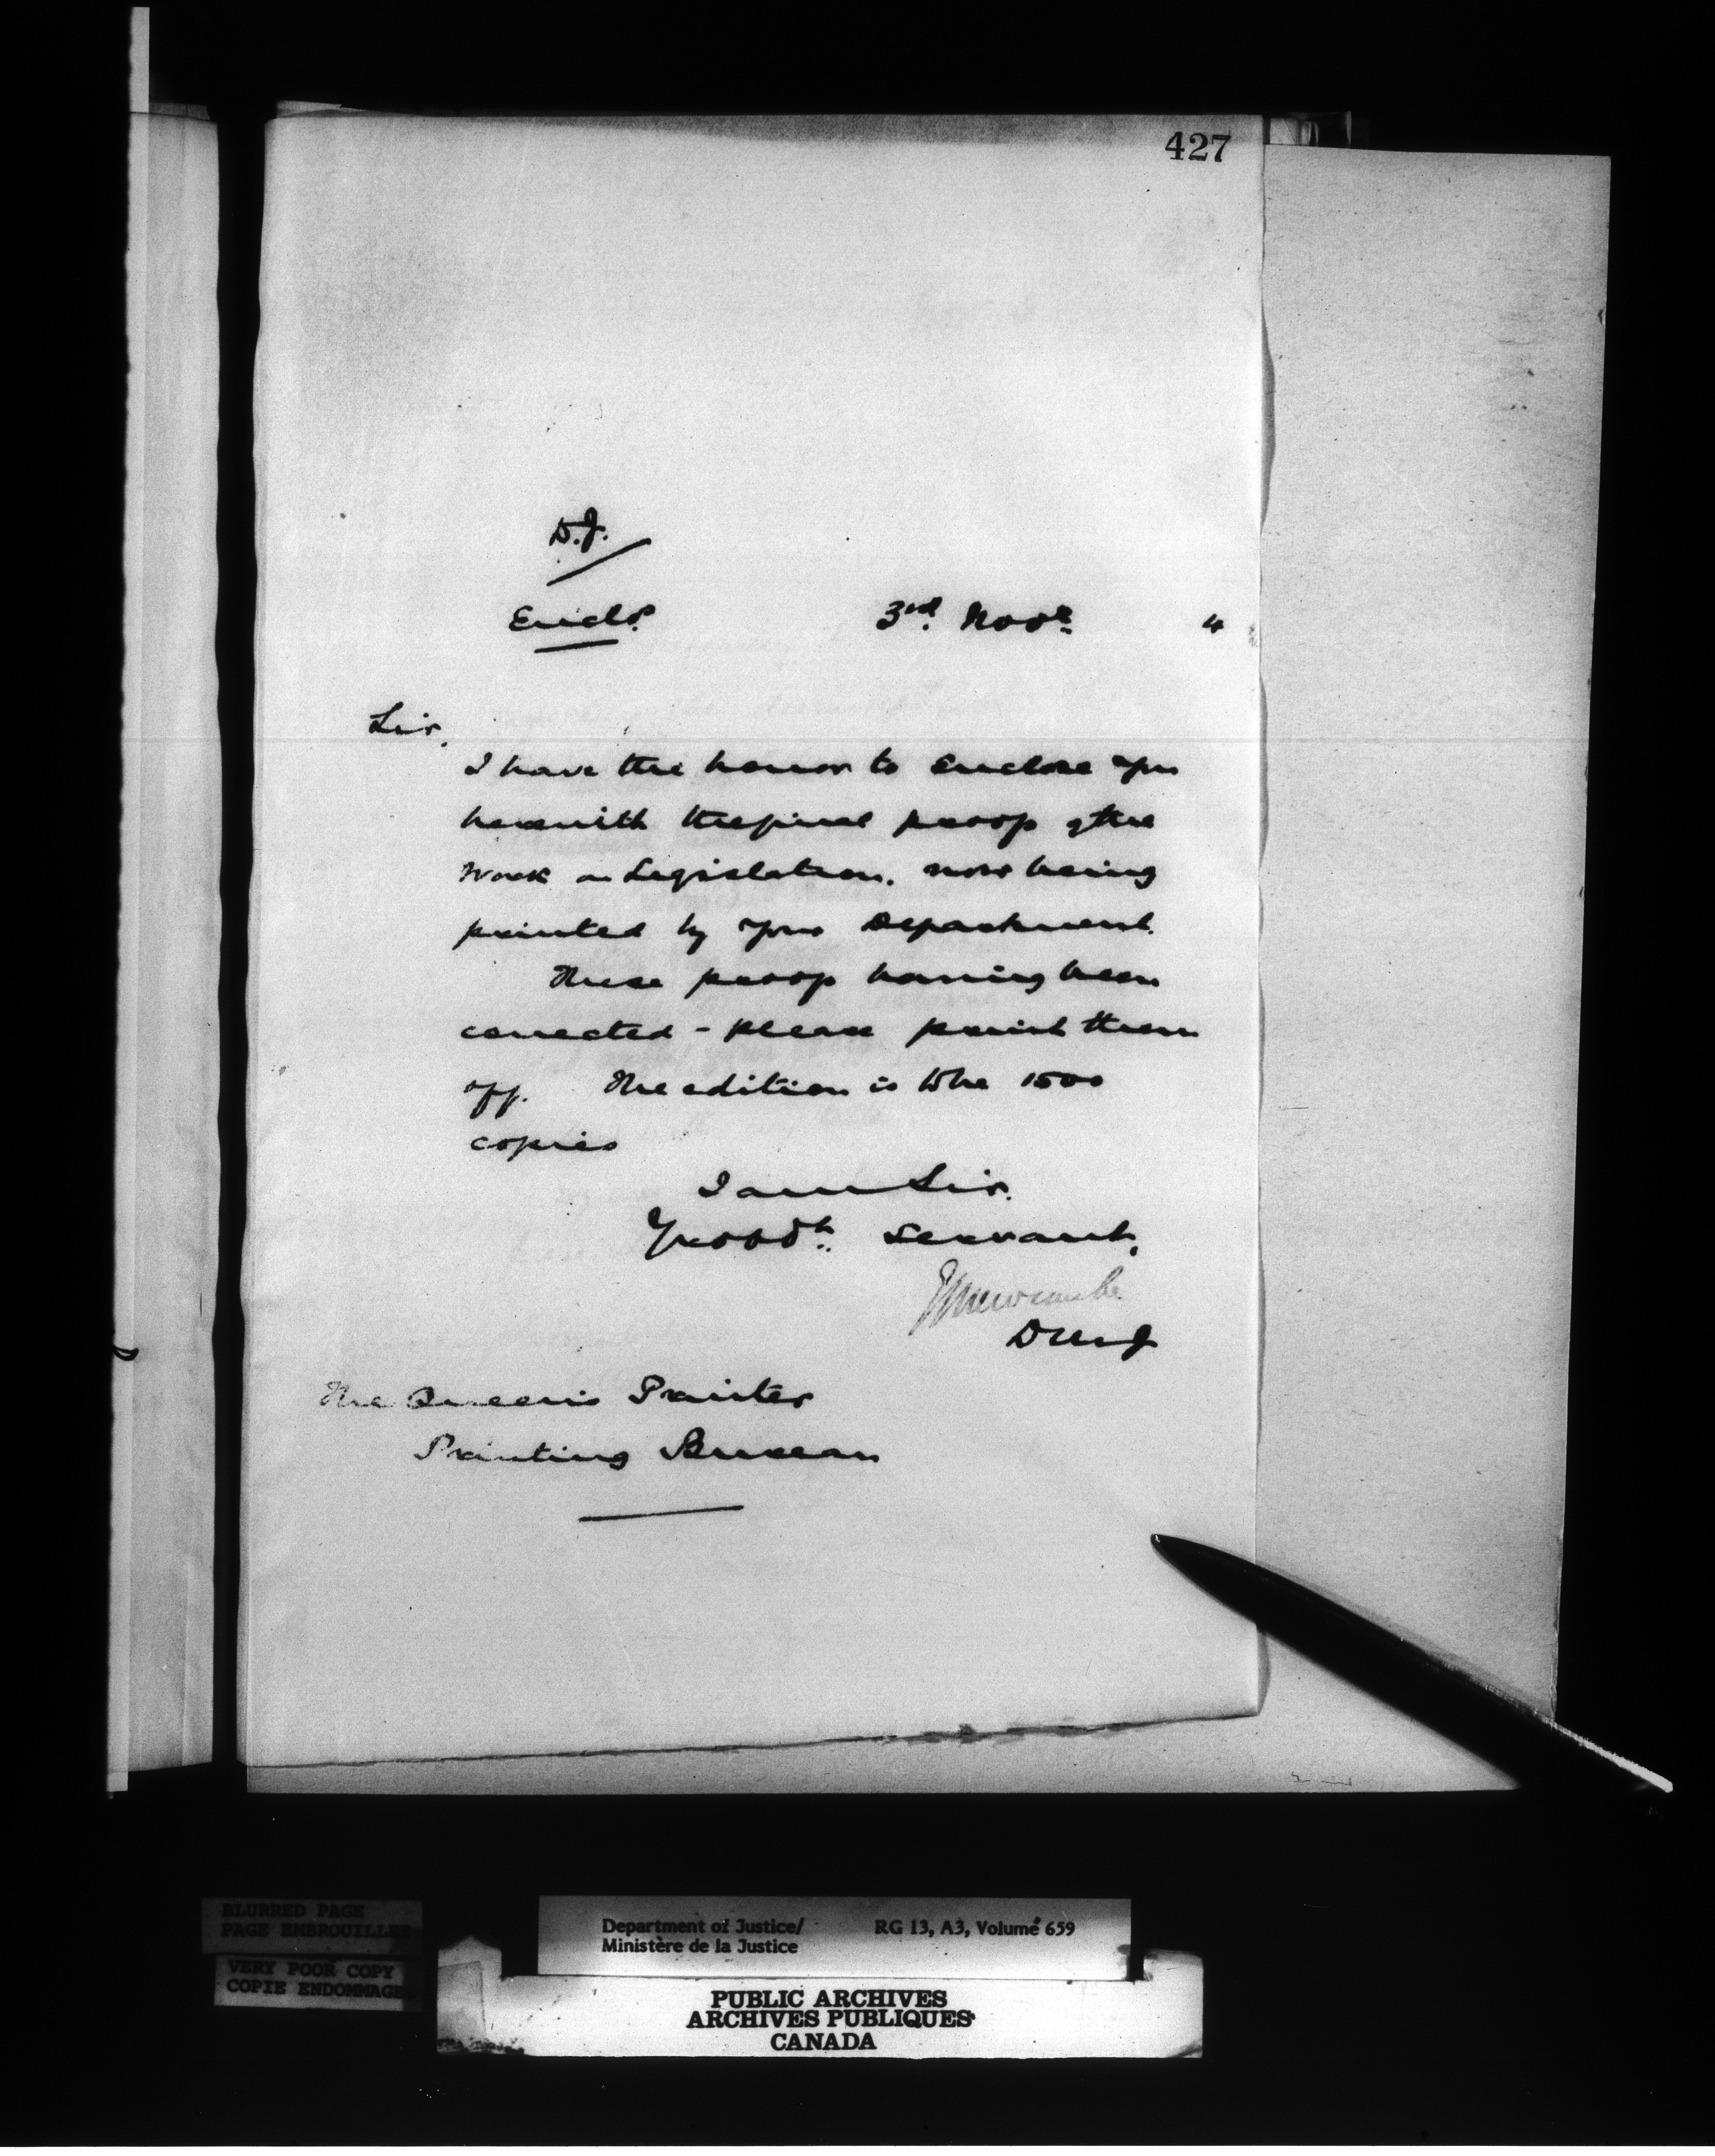 427
D.J.
Enclr.
3rd. Novr. 4
Sir,
I have the honor to enclose you
herewith the final proof of the
work on Legislation. now being
printed by your Department.
These proofs having been
corrected - please print them
off. The edition is to be 1500
copies
I am Sir.
Yr obdt. Servant,
Newcombe
DMJ
The Queen's Printer
Printing Bureau
BLURRED PAGE
PAGE EMBROUILLEE
VERY POOR COPY
COPIE ENDOMMAGEE
Department of Justice/ RG 13, A3, Volume 659
Ministère de la Justice
PUBLIC ARCHIVES
ARCHIVES PUBLIQUES
CANADA